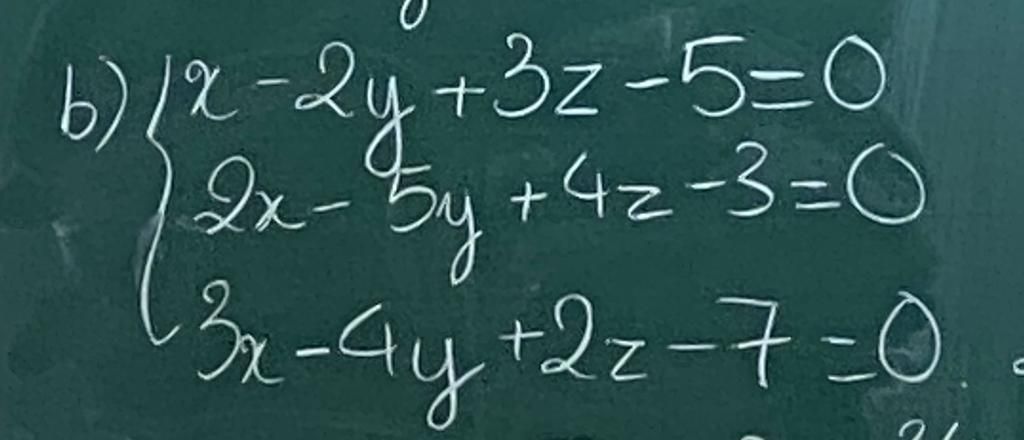 b) { x - 2y + 3z - 5 = 0
2x - 5y + 4z - 3 = 0
3x - 4y + 2z - 7 = 0.